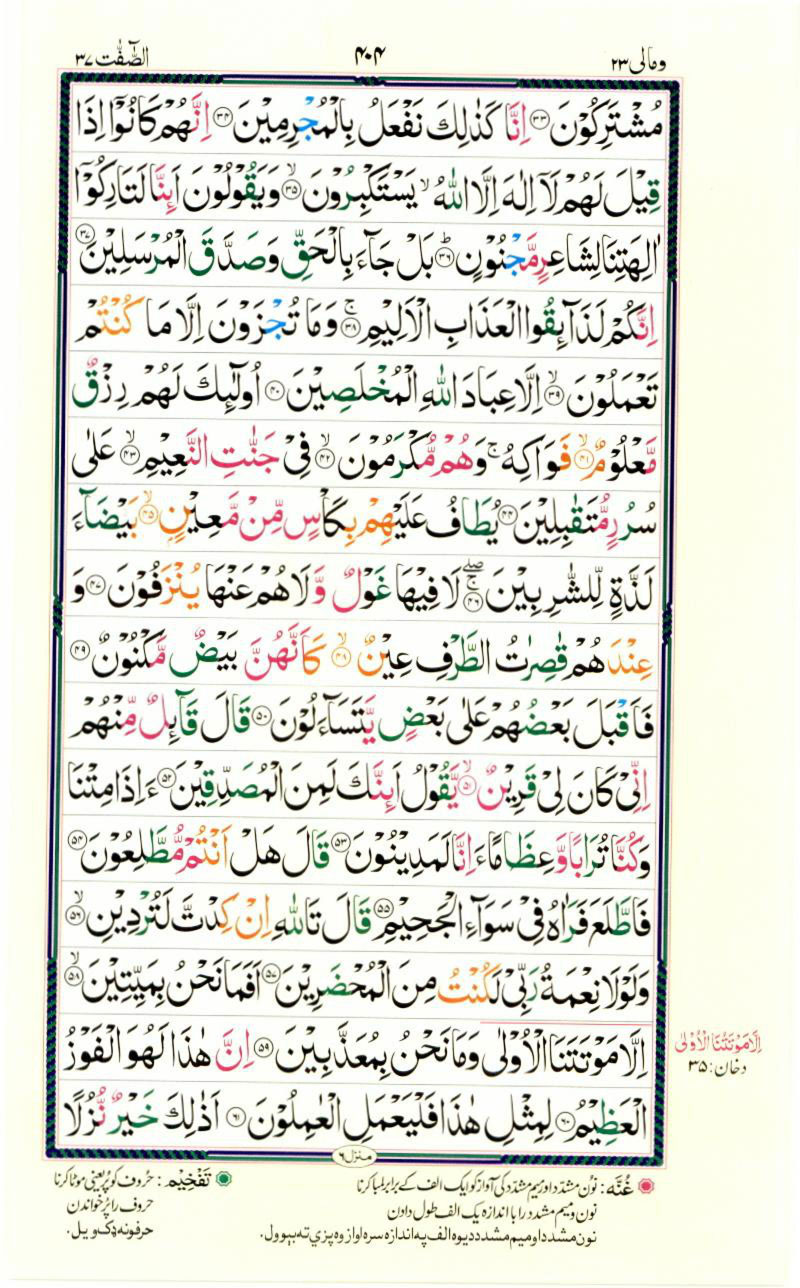 وما لی ۲۳
۴۰۴
الصّٰٓفّٰت ۳۷
مُشْتَرِكُوْنَ ۝۳۳ اِنَّا كَذٰلِكَ نَفْعَلُ بِالْمُجْرِمِيْنَ ۝۳۴ اِنَّهُمْ كَانُوْۤا اِذَا
قِيْلَ لَهُمْ لَاۤ اِلٰهَ اِلَّا اللّٰهُ ۙ يَسْتَكْبِرُوْنَ ۝۳۵ۙ وَيَقُوْلُوْنَ اَئِنَّا لَتَارِكُوْۤا
اٰلِهَتِنَا لِشَاعِرٍ مَّجْنُوْنٍ ۝۳۶ؕ بَلْ جَآءَ بِالْحَقِّ وَصَدَّقَ الْمُرْسَلِيْنَ ۝۳۷
اِنَّكُمْ لَذَآئِقُوا الْعَذَابِ الْاَلِيْمِ ۝۳۸ۚ وَمَا تُجْزَوْنَ اِلَّا مَا كُنْتُمْ
تَعْمَلُوْنَ ۝۳۹ۙ اِلَّا عِبَادَ اللّٰهِ الْمُخْلَصِيْنَ ۝۴۰ اُولٰٓئِكَ لَهُمْ رِزْقٌ
مَّعْلُوْمٌ ۝۴۱ۙ فَوَاكِهُ ۚ وَهُمْ مُّكْرَمُوْنَ ۝۴۲ۙ فِيْ جَنّٰتِ النَّعِيْمِ ۝۴۳ۙ عَلٰى
سُرُرٍ مُّتَقٰبِلِيْنَ ۝۴۴ يُطَافُ عَلَيْهِمْ بِكَاْسٍ مِّنْ مَّعِيْنٍ ۝۴۵ۙ بَيْضَآءَ
لَذَّةٍ لِّلشّٰرِبِيْنَ ۝۴۶ۚۖ لَا فِيْهَا غَوْلٌ وَّلَا هُمْ عَنْهَا يُنْزَفُوْنَ ۝۴۷ وَ
عِنْدَهُمْ قٰصِرٰتُ الطَّرْفِ عِيْنٌ ۝۴۸ۙ كَاَنَّهُنَّ بَيْضٌ مَّكْنُوْنٌ ۝۴۹
فَاَقْبَلَ بَعْضُهُمْ عَلٰى بَعْضٍ يَّتَسَآءَلُوْنَ ۝۵۰ قَالَ قَآئِلٌ مِّنْهُمْ
اِنِّيْ كَانَ لِيْ قَرِيْنٌ ۝۵۱ۙ يَّقُوْلُ اَئِنَّكَ لَمِنَ الْمُصَدِّقِيْنَ ۝۵۲ ءَاِذَا مِتْنَا
وَكُنَّا تُرَابًا وَّعِظَامًا ءَاِنَّا لَمَدِيْنُوْنَ ۝۵۳ قَالَ هَلْ اَنْتُمْ مُّطَّلِعُوْنَ ۝۵۴
فَاطَّلَعَ فَرَاٰهُ فِيْ سَوَآءِ الْجَحِيْمِ ۝۵۵ قَالَ تَاللّٰهِ اِنْ كِدْتَّ لَتُرْدِيْنِ ۝۵۶ۙ
وَلَوْلَا نِعْمَةُ رَبِّيْ لَكُنْتُ مِنَ الْمُحْضَرِيْنَ ۝۵۷ اَفَمَا نَحْنُ بِمَيِّتِيْنَ ۝۵۸ۙ
اِلَّا مَوْتَتَنَا الْاُوْلٰى وَمَا نَحْنُ بِمُعَذَّبِيْنَ ۝۵۹ اِنَّ هٰذَا لَهُوَ الْفَوْزُ
الْعَظِيْمُ ۝۶۰ لِمِثْلِ هٰذَا فَلْيَعْمَلِ الْعٰمِلُوْنَ ۝۶۱ اَذٰلِكَ خَيْرٌ نُّزُلًا
اِلَّا مَوْتَتُنَا الْاُوْلٰى
دخان: ۳۵
منزل ۶
غُنَّه: نون مشدد اور میم مشدد کی آواز کو ایک الف کے برابر لمبا کرنا
نون و میم مشدد را با اندازه یک الف طول دادن
نون مشدد او میم مشدد دیوه الف په اندازه سره اواز وه پزې ته بېوول.
تَفْخِیْم: حروف کو پُر یعنی موٹا کرنا
حروف را پُر خواندن
حرفونه ډک ویل.